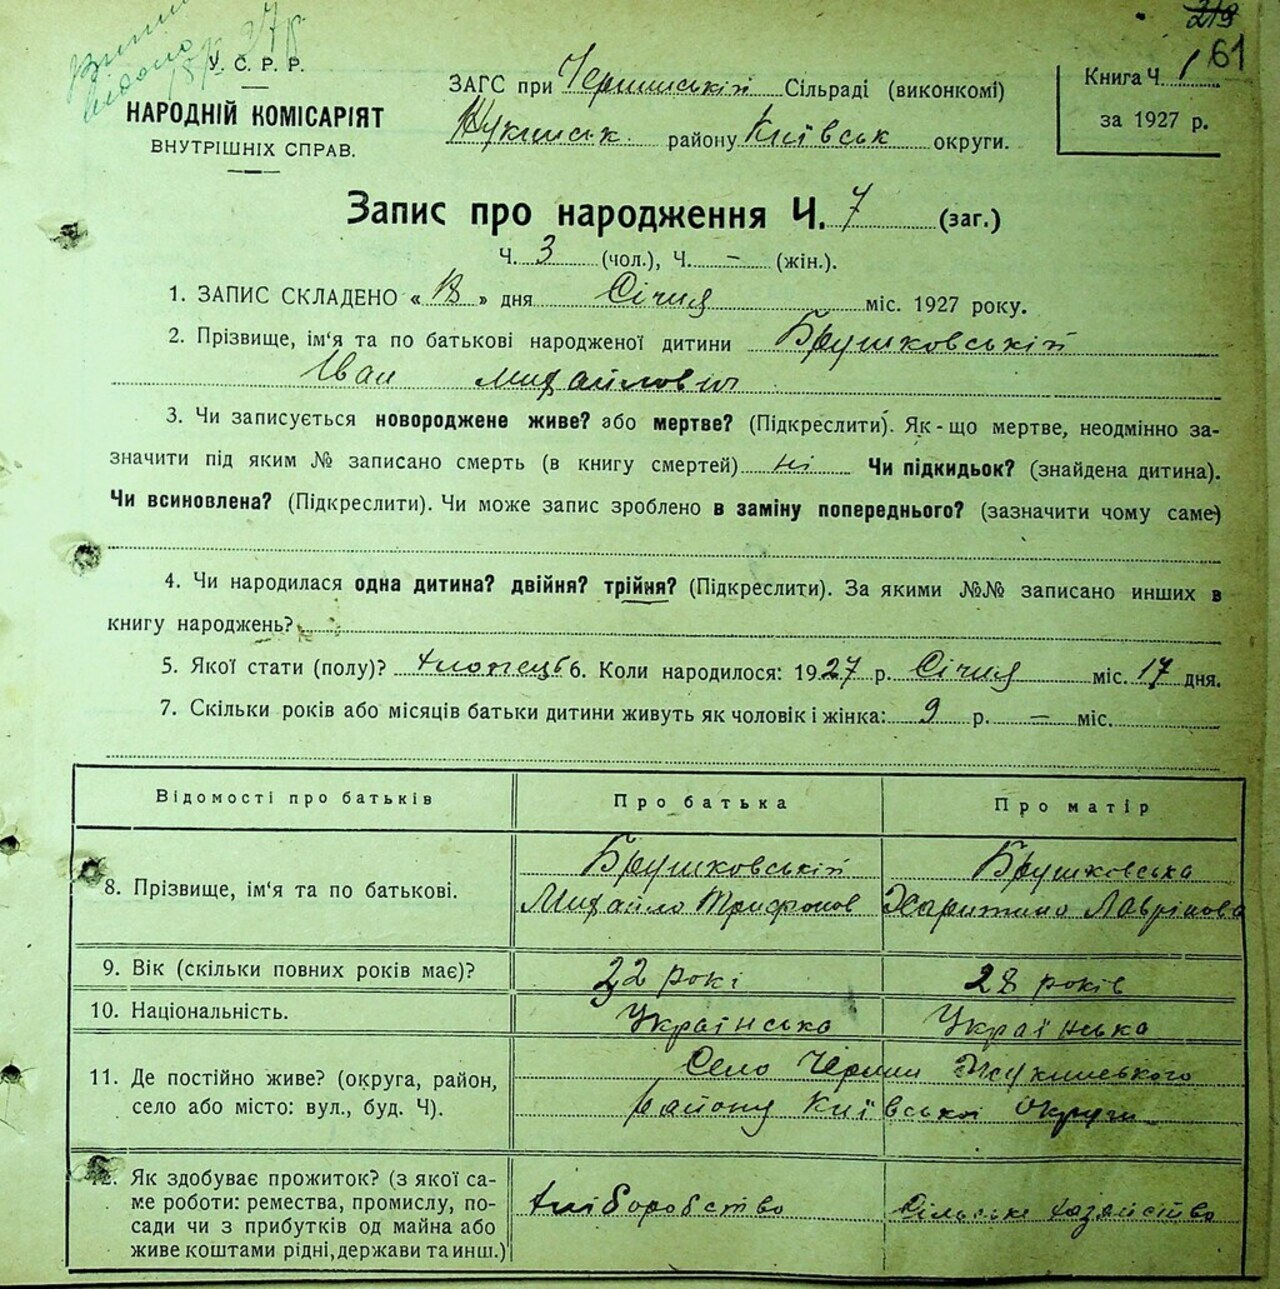 219
61
27р
У. С. Р. Р.
НАРОДНІЙ КОМІСАРІЯТ
ВНУТРІШНІХ СПРАВ.
ЗАГС при Сільраді (виконкомі)
району Київськ округи.
Книга Ч. 1
за 1927 р.
Запис про народження Ч. 7 (заг.)
Ч. 3 (чол.), Ч. – (жін.).
1. ЗАПИС СКЛАДЕНО « 18 » дня Січня міс. 1927 року.
2. Прізвище, ім'я та по батькові народженої дитини Брушковський
Іван Михайлович
3. Чи записується новороджене живе? або мертве? (Підкреслити). Як-що мертве, неодмінно за-
значити під яким № записано смерть (в книгу смертей) ні Чи підкидьок? (знайдена дитина).
Чи всиновлена? (Підкреслити). Чи може запис зроблено в заміну попереднього? (зазначити чому саме)
4. Чи народилася одна дитина? двійня? трійня? (Підкреслити). За якими №№ записано инших в
книгу народжень?
5. Якої стати (полу)? хлопець 6. Коли народилося: 1927 р. Січня міс. 17 дня.
7. Скільки років або місяців батьки дитини живуть як чоловік і жінка: 9 р. — міс.
Відомості про батьків Про батька Про матір
8. Прізвище, ім'я та по батькові. Брушковський Брушковська
Михайло Трифонов Харитина Лаврінова
9. Вік (скільки повних років має)? 32 рокі 28 років
10. Національність. Українська Українька
11. Де постійно живе? (округа, район,
село або місто: вул., буд. Ч).
Село Черниш
району Київської Округи
12. Як здобуває прожиток? (з якої са-
ме роботи: ремества, промислу, по-
сади чи з прибутків од майна або
живе коштами рідні, держави та инш.)
хліборобство Сільське хазяйство